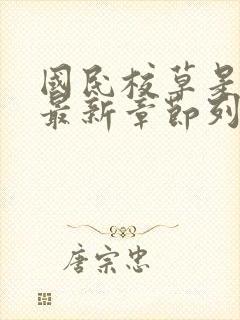 國民校草是
最新章節列
唐宗忠